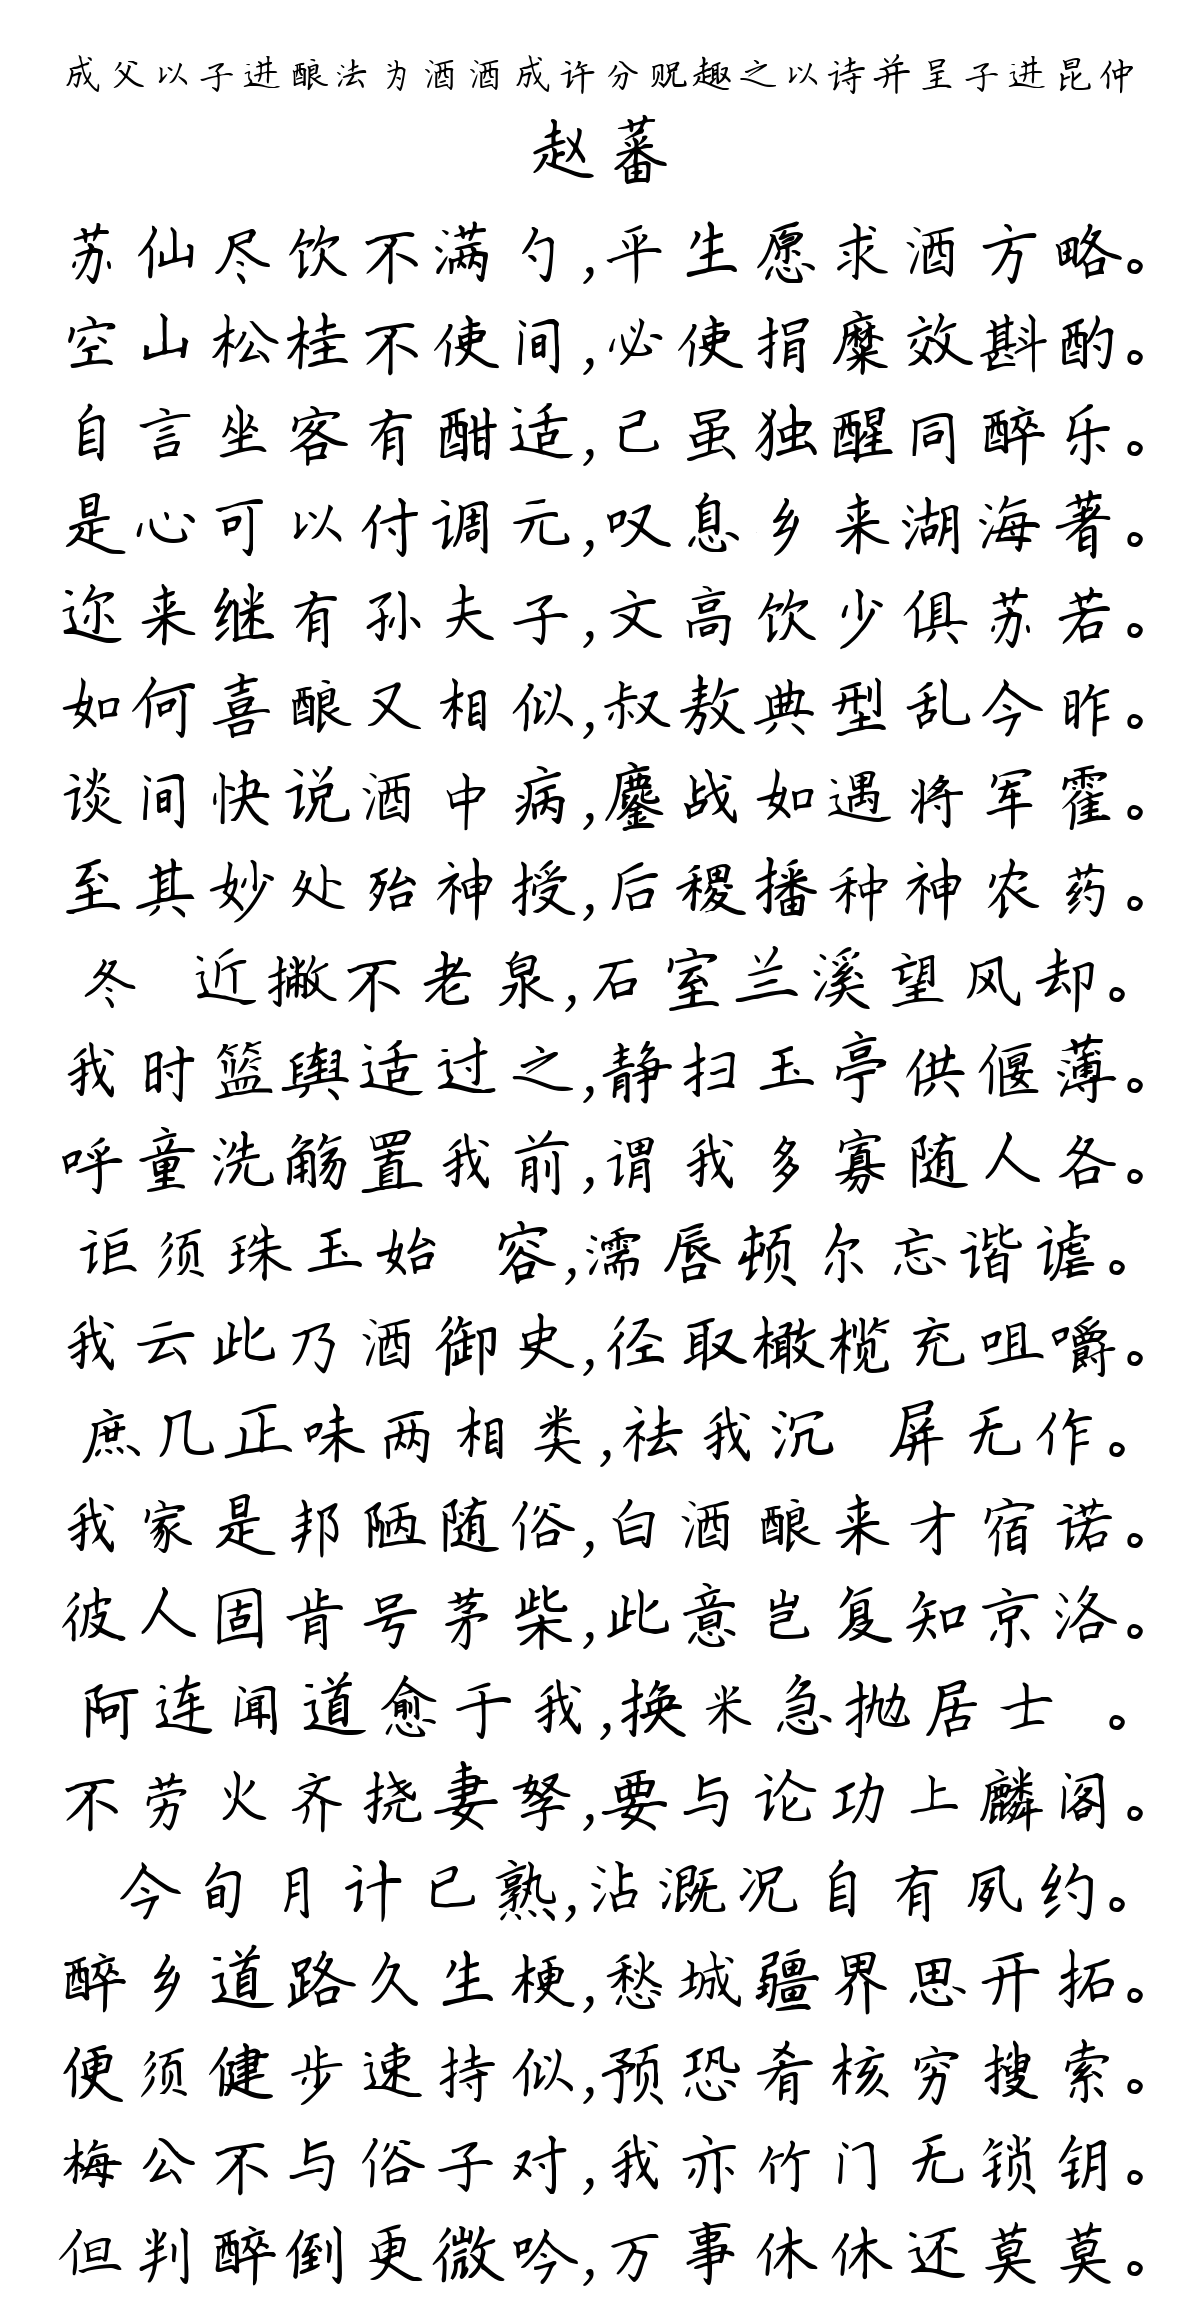 成父以子进酿法为酒酒成许分贶趣之以诗并呈子进昆仲
赵蕃
苏仙尽饮不满勺,平生愿求酒方略。
空山松桂不使间,必使捐糜效斟酌。
自言坐客有酣适,己虽独醒同醉乐。
是心可以付调元,叹息乡来湖海著。
迩来继有孙夫子,文高饮少俱苏若。
如何喜酿又相似,叔敖典型乱今昨。
谈间快说酒中病,鏖战如遇将军霍。
至其妙处殆神授,后稷播种神农药。
冬 近撇不老泉,石室兰溪望风却。
我时篮舆适过之,静扫玉亭供偃薄。
呼童洗觞置我前,谓我多寡随人各。
讵须珠玉始 容,濡唇顿尔忘谐谑。
我云此乃酒御史,径取橄榄充咀嚼。
庶几正味两相类,祛我沉 屏无作。
我家是邦陋随俗,白酒酿来才宿诺。
彼人固肯号茅柴,此意岂复知京洛。
阿连闻道愈于我,换米急抛居士 。
不劳火齐挠妻孥,要与论功上麟阁。
今旬月计已熟,沾溉况自有夙约。
醉乡道路久生梗,愁城疆界思开拓。
便须健步速持似,预恐肴核穷搜索。
梅公不与俗子对,我亦竹门无锁钥。
但判醉倒更微吟,万事休休还莫莫。